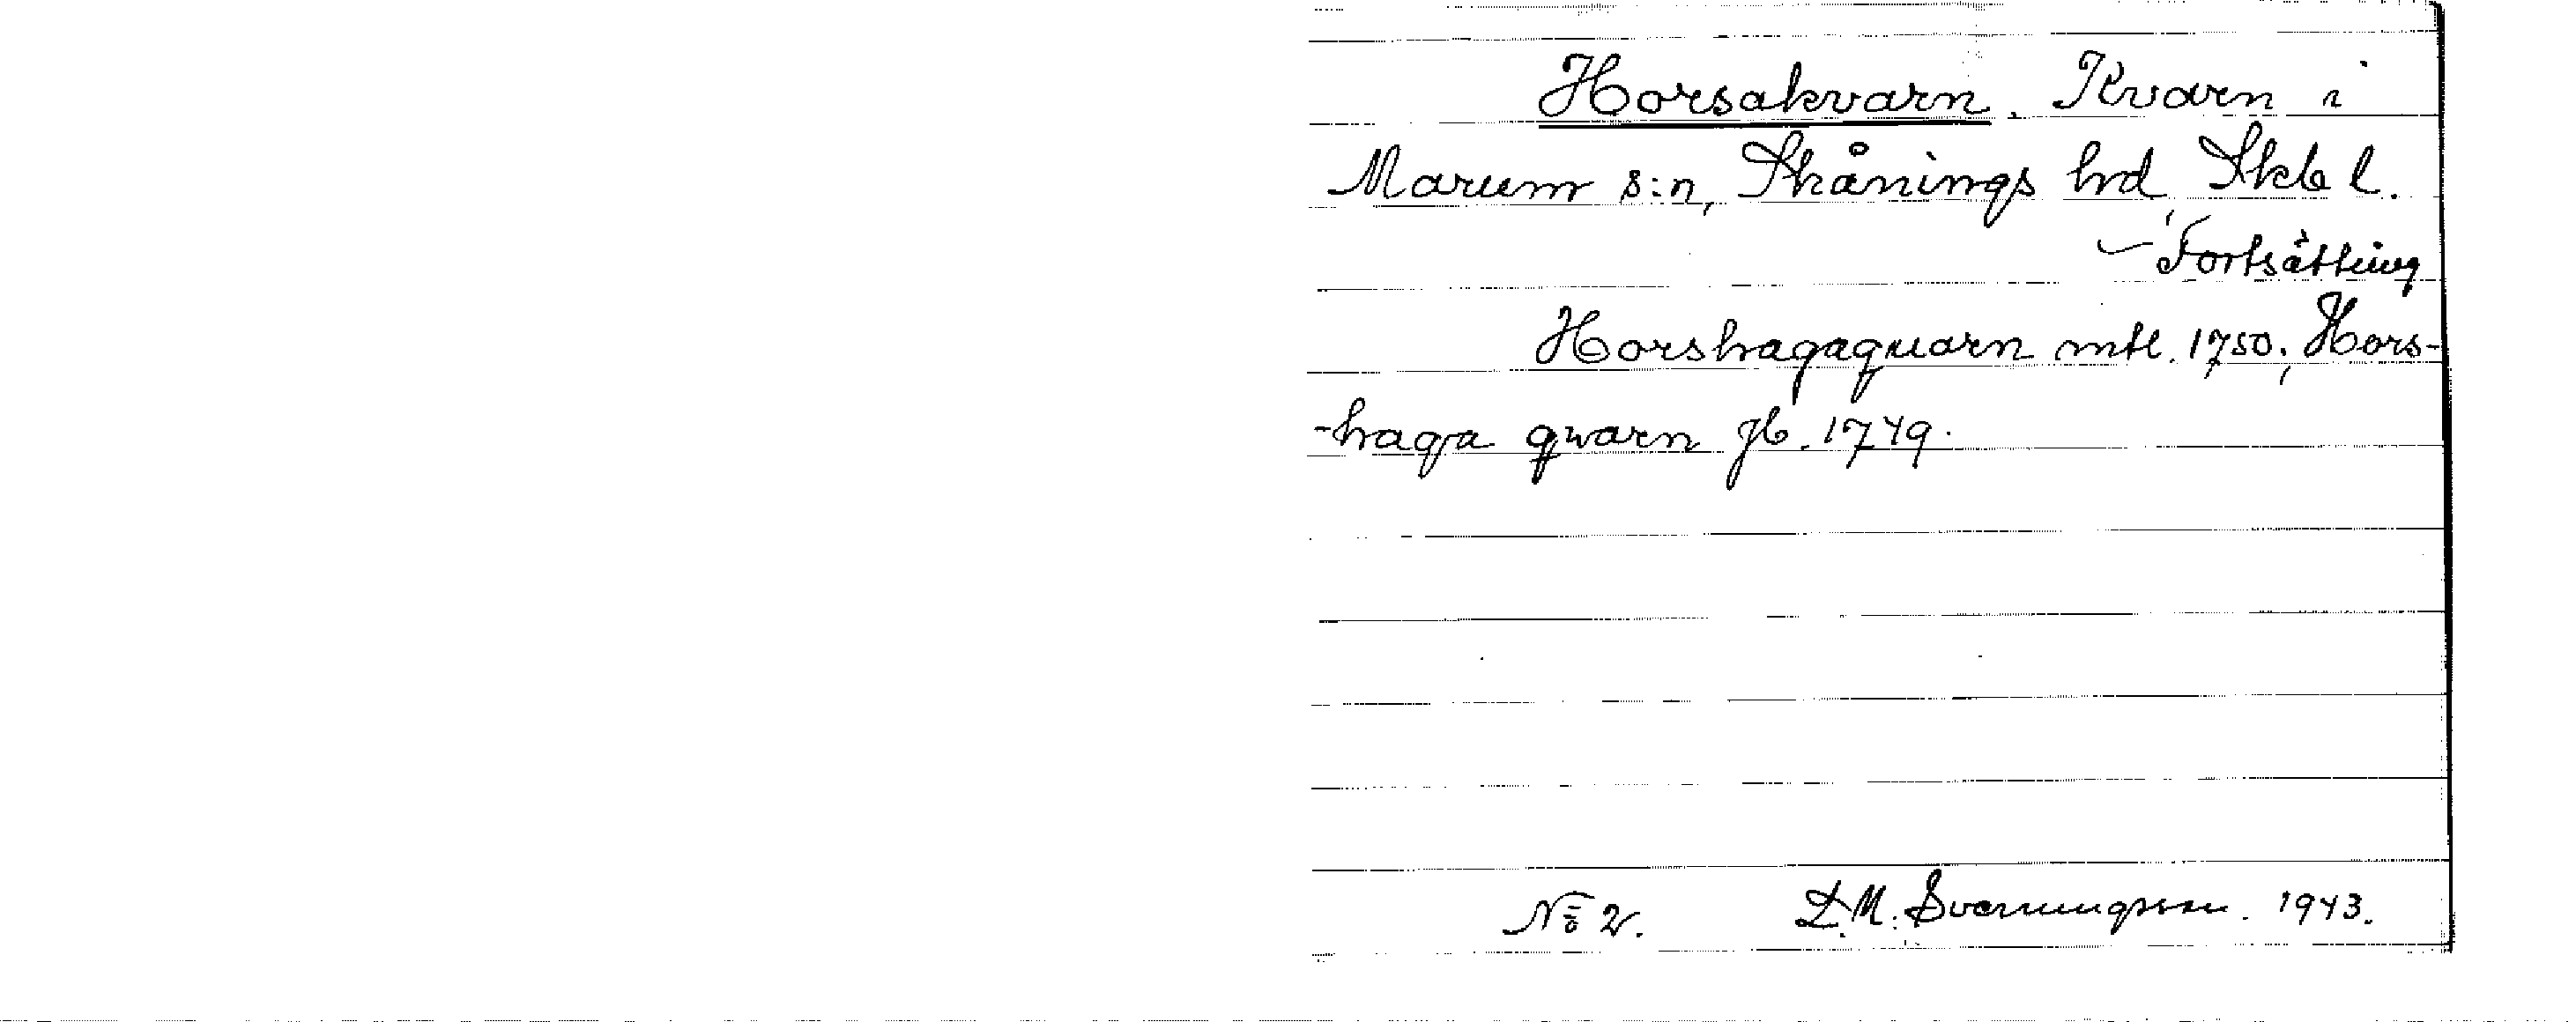 Horsakvarn. Kvarn i
Marum s:n, Skånings hd, Skb l.
Fortsättning
Horshagaquarn mtl. 1750; Hors-
-haga qwarn jb. 1749.
No 2. L.M. Svenungsson. 1943.